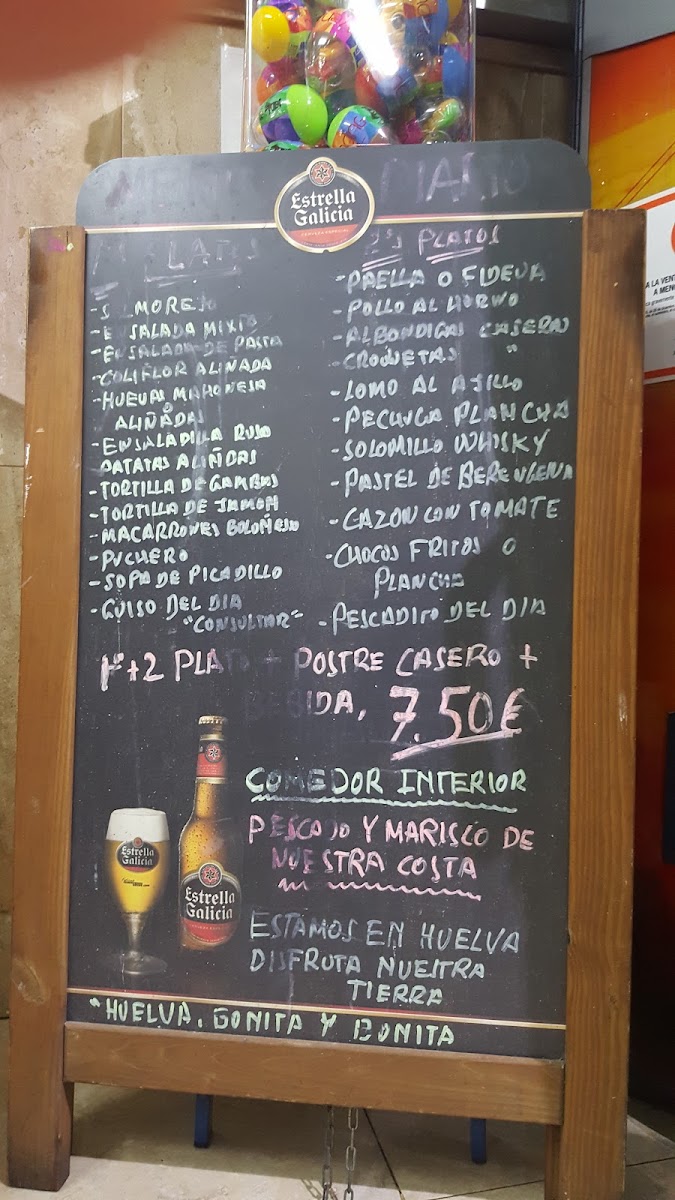 MENU DIARIO
Estrella
Galicia
CERVEZA ESPECIAL
1ºS PLATOS
- SALMOREJO
- ENSALADA MIXTA
- ENSALADA DE PASTA
- COLIFLOR ALIÑADA
- HUEVAS MAHONESA
O
ALIÑADAS
- ENSALADILLA RUSA
PATATAS ALIÑDAS
- TORTILLA DE GAMBAS
- TORTILLA DE JAMON
- MACARRONES BOLOÑESA
- PUCHERO
- SOPA DE PICADILLO
- GUISO DEL DIA
"CONSULTAR"
2ºS PLATOS
- PAELLA O FIDEUA
- POLLO AL HORNO
- ALBONDIGAS CASERA
- CROQUETAS "
- LOMO AL AJILLO
- PECHUGA PLANCHA
- SOLOMILLO WHISKY
- PASTEL DE BERENGENA
- CAZON CON TOMATE
- CHOCOS FRITOS O
PLANCHA
- PESCADITO DEL DIA
1º+2 PLATO + POSTRE CASERO +
BEBIDA, 7.50€
COMEDOR INTERIOR
PESCADO Y MARISCO DE
NUESTRA COSTA
ESTAMOS EN HUELVA
DISFRUTA NUESTRA
TIERRA
"HUELVA, GONITA Y BONITA
Estrella
Galicia
Estrella
Galicia
A LA VENT
A MENO